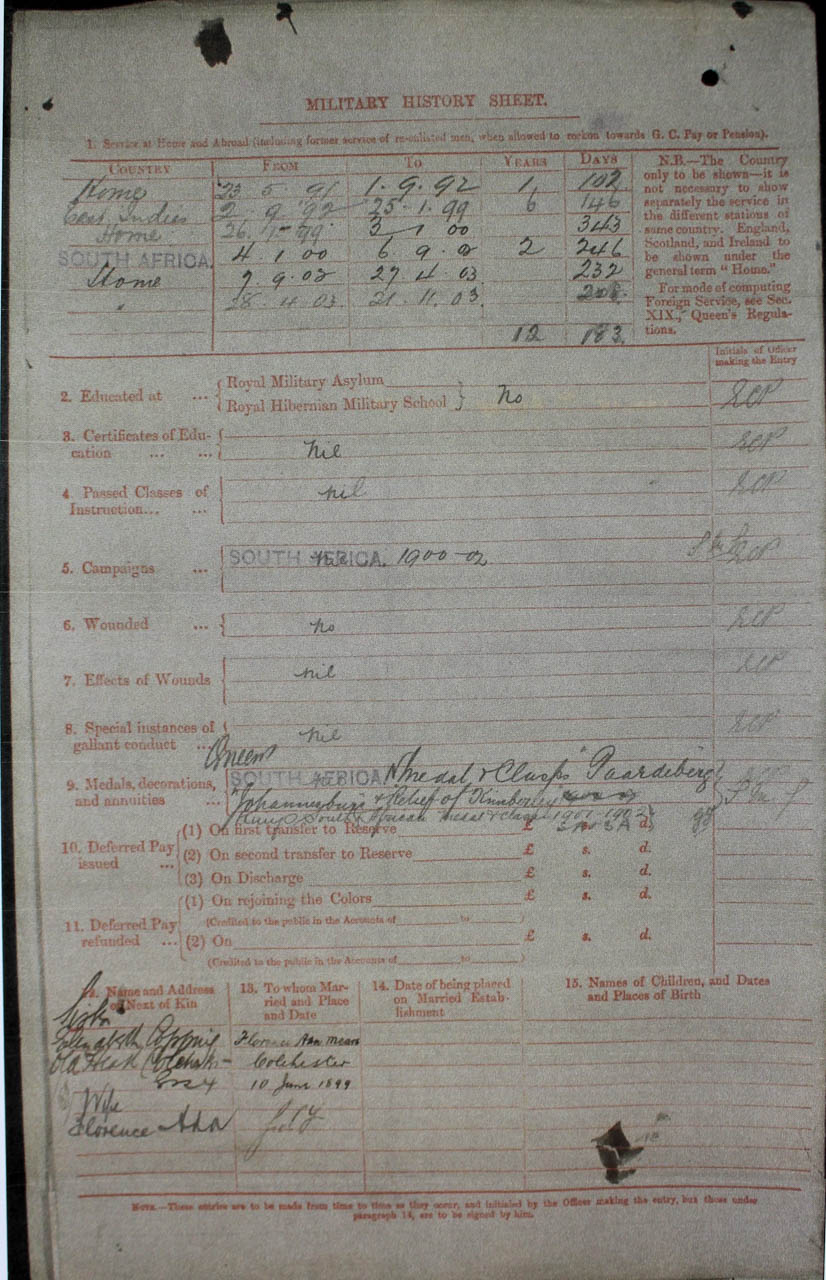 MILITARY HISTORY SHEET.
1. Service at Home and Abroad (including former service of re-enlisted men, when allowed to reckon towards G. C. Pay or Pension).
COUNTRY FROM TO YEARS DAYS
Home 23 5 91 1. 9. 92 1 102
East Indies 2 9 92 25. 1. 99 6 146
Home 26. 1. 99 3 1 00 343
SOUTH AFRICA. 4. 1. 00 6. 9. 02 2 246
Home 7. 9. 02 27 4 03. 232
" 28. 4. 03. 21. 11. 03. 208.
12 183.
N.B.—The Country
only to be shown—it is
not necessary to show
separately the service in
the different stations of
same country. England,
Scotland, and Ireland to
be shown under the
general term "Home."
For mode of computing
Foreign Service, see Sec.
XIX., Queen's Regula-
tions.
Initials of Officer
making the Entry
2. Educated at ... Royal Military Asylum
Royal Hibernian Military School No
3. Certificates of Edu-
cation ... ... nil
4. Passed Classes of
Instruction... ... nil
5. Campaigns ... SOUTH AFRICA. 1900-02
6. Wounded ... no
7. Effects of Wounds nil
8. Special instances of
gallant conduct ... nil
Queens
9. Medals, decorations,
and annuities ... SOUTH AFRICA Medal & Clasps "Paardeberg
"Johannesburg & Relief of Kimberley
South African medal & clasps 1901 1902
10. Deferred Pay
issued ... (1) On first transfer to Reserve £ s. d.
(2) On second transfer to Reserve £ s. d.
(3) On Discharge £ s. d.
11. Deferred Pay
refunded ... (1) On rejoining the Colors £ s. d.
(Credited to the public in the Accounts of to )
(2) On £ s. d.
(Credited to the public in the Accounts of to )
12. Name and Address
of Next of Kin
13. To whom Mar-
ried and Place
and Date
14. Date of being placed
on Married Estab-
lishment
15. Names of Children, and Dates
and Places of Birth
Sister
Elizabeth Copping Florence Ada
Old Heath Colchester Colchester
Essex 10 June 1899
Wife July
Florence Ada
NOTE.—These entries are to be made from time to time as they occur, and initialed by the Officer making the entry, but those under
paragraph 14, are to be signed by him.